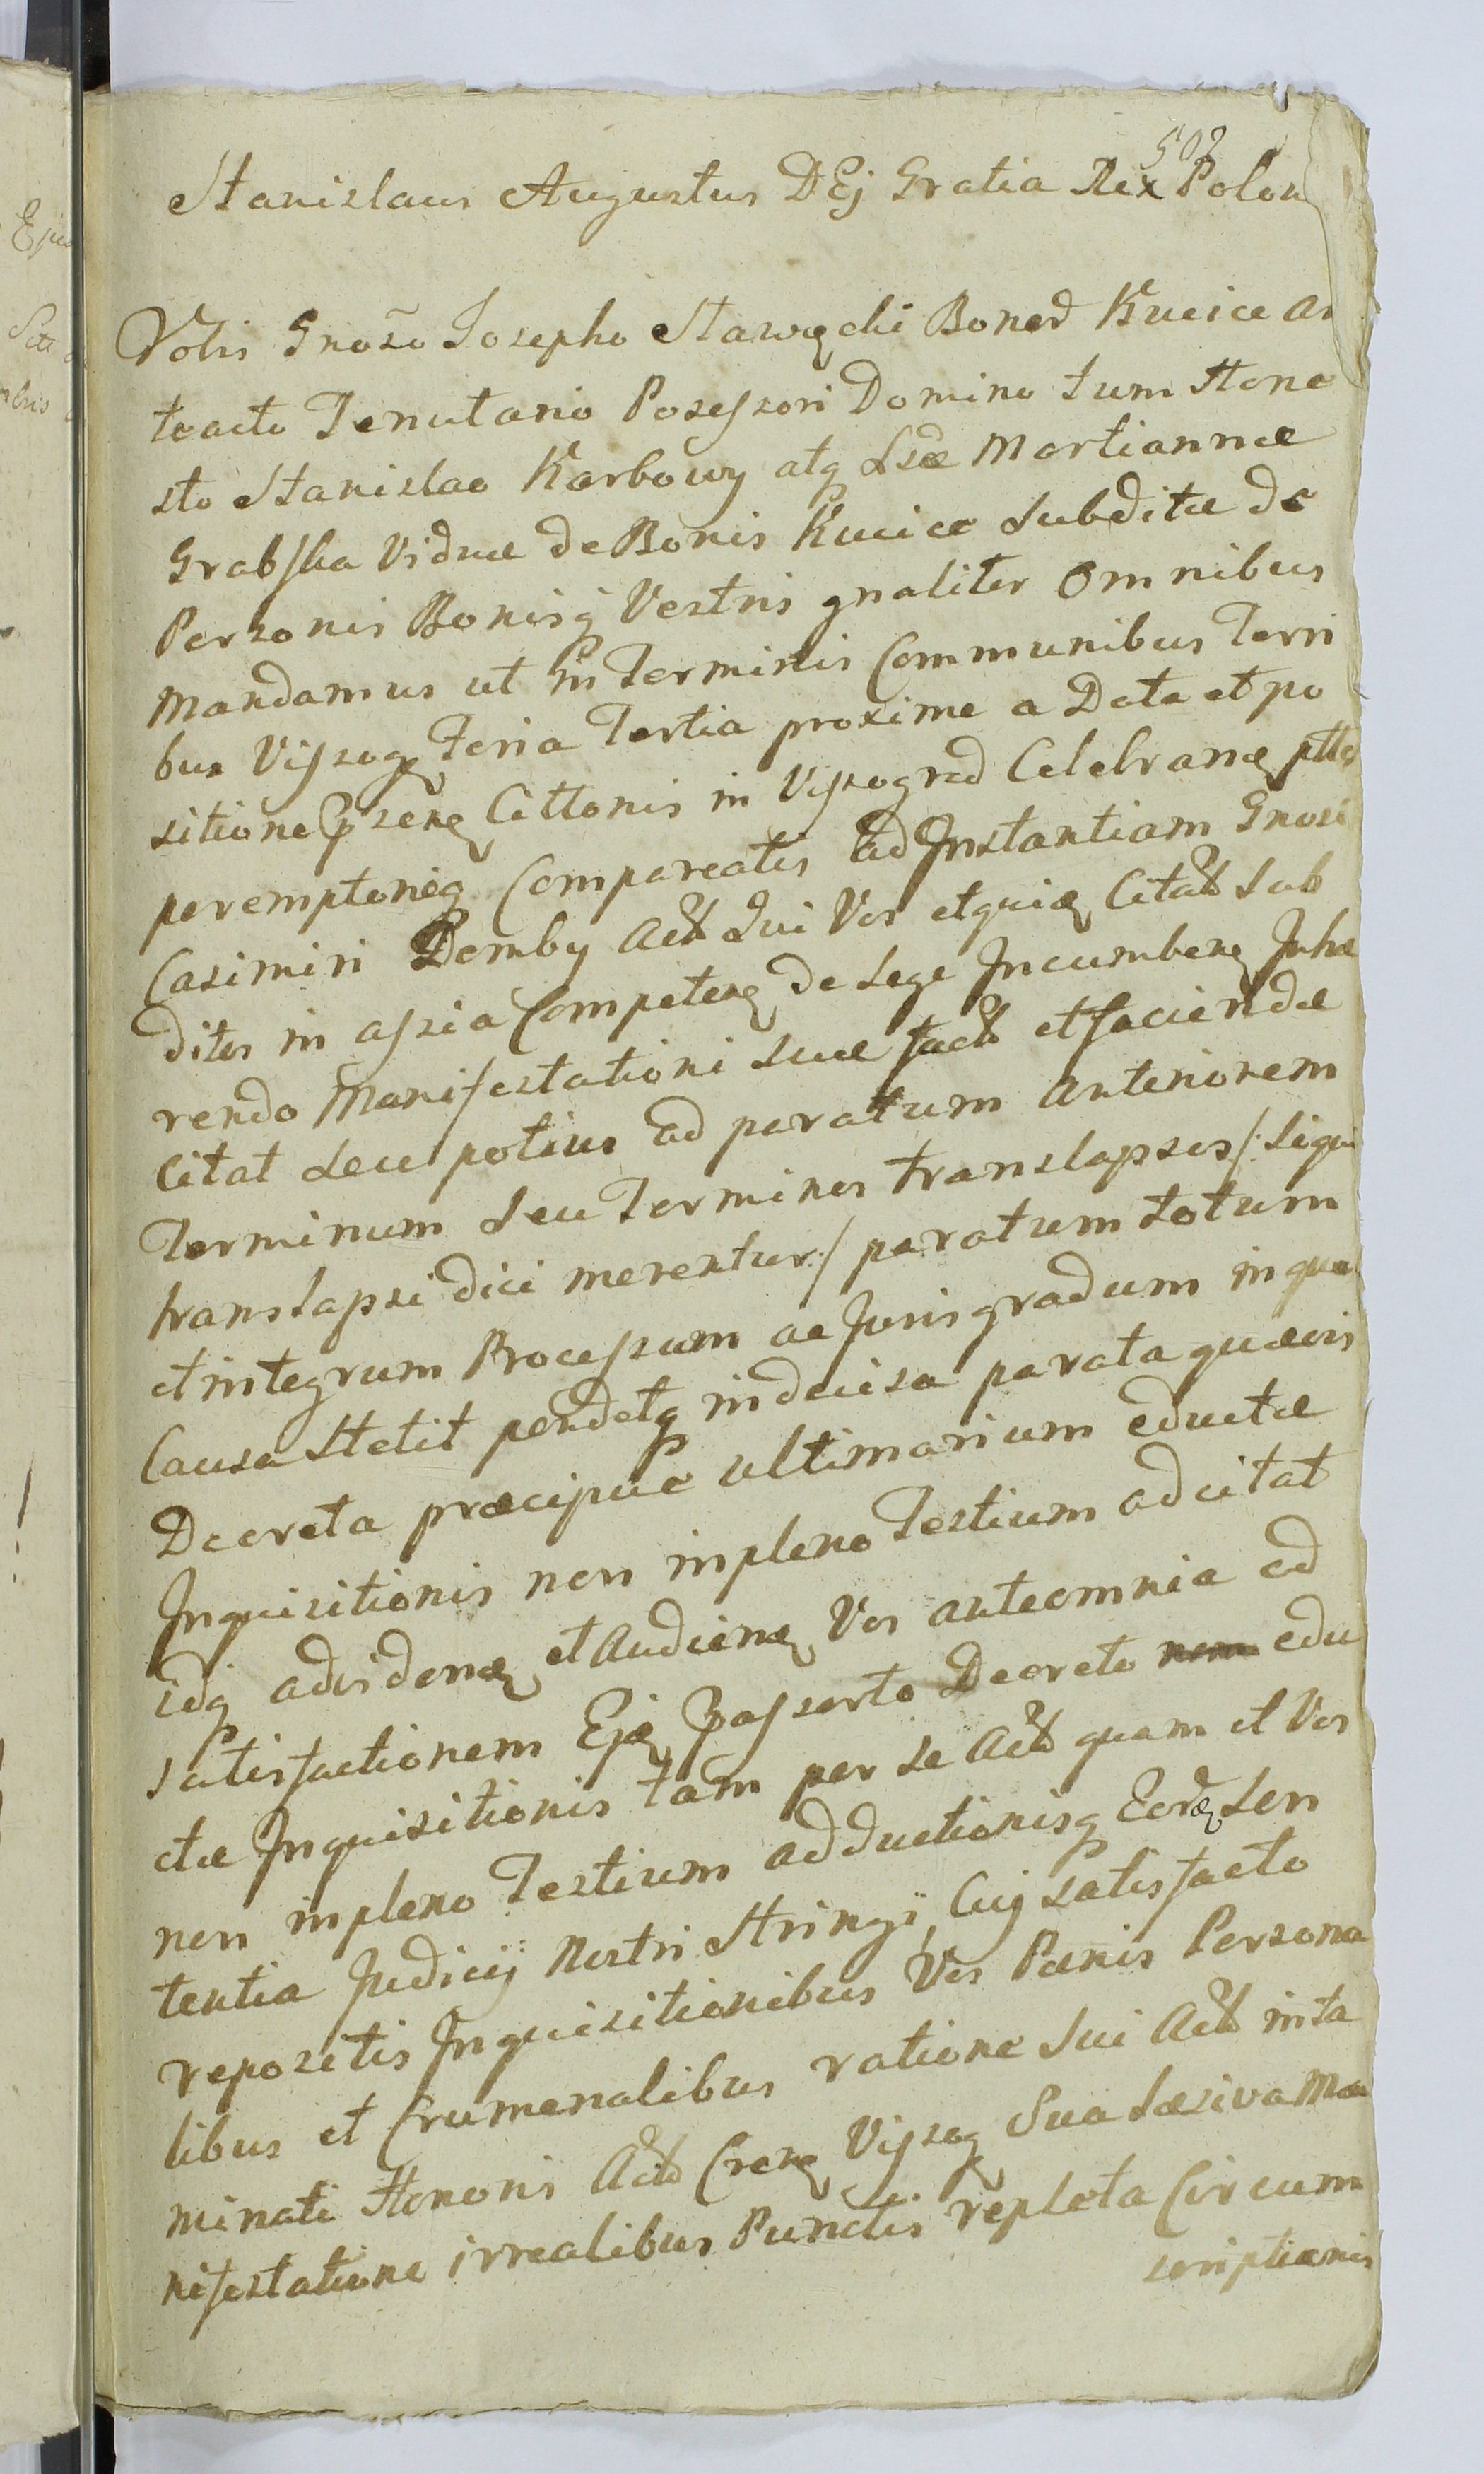 507
Stanislaus Augustus DEj Gratia Rex Polon
Vobis Gnoso Josepho Stawęcki Bonor Kucice Ar
tracto Tenutario Possessori Domino tum Hone
sto Stanislao Karbowy atq Lsæ Martiannæ
Grabska Viduæ de Bonis Kucice Subditæ de
Personis Bonisq Vestris gnaliter Omnibus
Mandamus ut in Terminis Communibus Terri
bus Vissog Feria Tertia proxime a Data et po
sitione pseng Cittonis in Vissogrod Celebrang ptto
peremptorieq Compareatis ad Instantiam Gnosi
Casimiri Demby Act Qui Vos etquią Citat Sub
ditos in assia Competeng de Lege Incumbeng Inhæ
rendo Manifestationi Suæ fact et faciendæ
Citat Seu potius ad paratum anteriorem
Terminum Seu Terminos translapsos /: Siqui
translapsi dici merentur :/ paratum totum
et integrum Processum ac Juris gradum in quo
Causa Stetit pendetq indecisa parata quævis
Decreta præcipue ultimarium eductæ
Inquisitionis non in pleno Testium ad citat
idq advidong et Audieng Vos anteomnia ad
satisfactionem Ejg passerto Decreto edu
ctæ Inquisitionis tam per Se Act quam et Vos
non in pleno Testium adductionisq Eorg Sen
tentia Judicij Nostri Stringi, Cuj satisfacto
repositis Inquisitionibus Vos Pænis Persona
libus et Crumenalibus ratione Sui Act inta
minati Honoris Act Creng Vissog Sua Læsiva Ma
nifestatione irrealibus Punctis repleta Circum
scriptionis